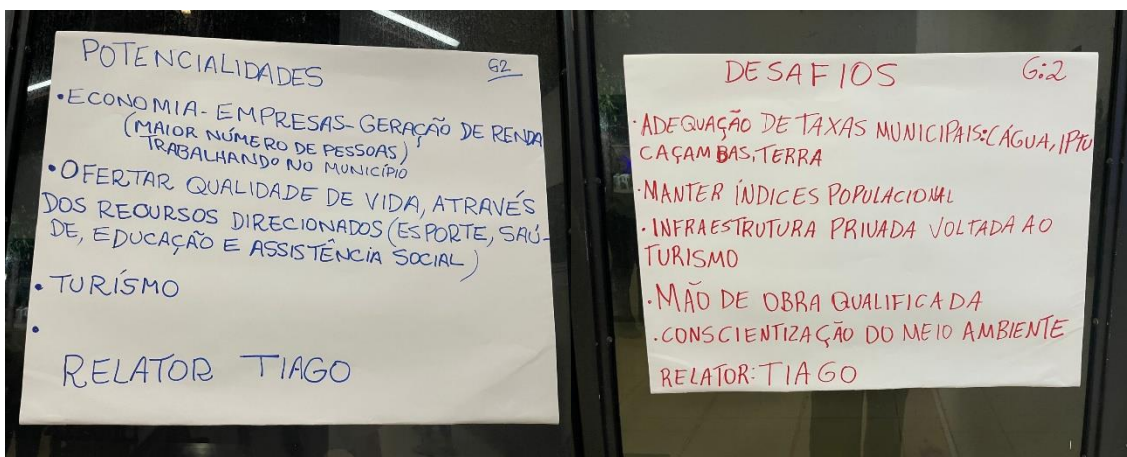 POTENCIALIDADES G2
• ECONOMIA - EMPRESAS - GERAÇÃO DE RENDA
(MAIOR NÚMERO DE PESSOAS)
TRABALHANDO NO MUNICÍPIO
• OFERTAR QUALIDADE DE VIDA, ATRAVÉS
DOS RECURSOS DIRECIONADOS (ESPORTE, SAÚ-
DE, EDUCAÇÃO E ASSISTÊNCIA SOCIAL)
• TURÍSMO
•
RELATOR TIAGO
DESAFIOS G:2
· ADEQUAÇÃO DE TAXAS MUNICIPAIS: (ÁGUA, IPTU
CAÇAMBAS, TERRA
· MANTER ÍNDICES POPULACIONAL
· INFRAESTRUTURA PRIVADA VOLTADA AO
TURISMO
· MÃO DE OBRA QUALIFICADA
· CONSCIENTIZAÇÃO DO MEIO AMBIENTE
RELATOR: TIAGO